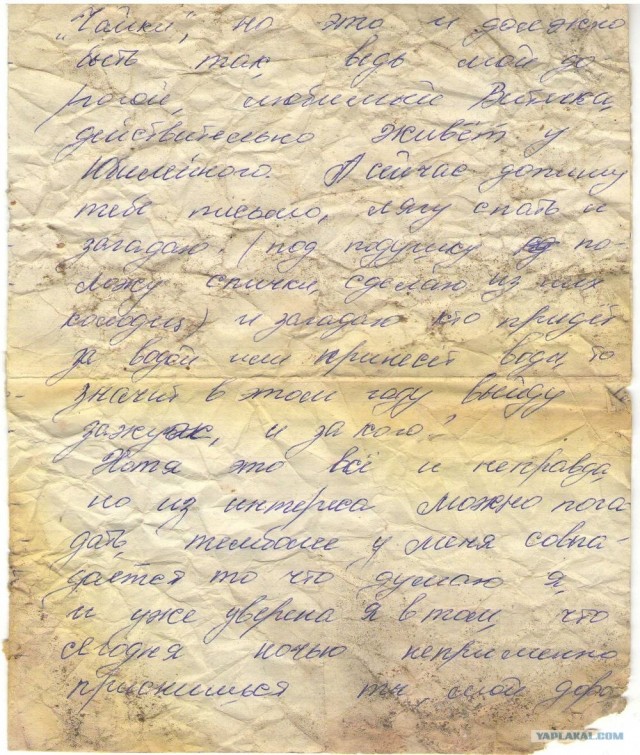 „Чайки", но это и должно
быть так, ведь мой до
рогой, любимый Витика,
действительно живёт у
Юбилейного. А сейчас допишу
тебе письмо, лягу спать и
загадаю. (под подушку по-
ложу спички, сделаю из них
колодец) и загадаю кто придёт
за водой или принесет воды, то
значит в этом году выйду
замуж, и за кого?
Хотя это всё и неправда,
но из интереса можно пога-
дать, темболее у меня совпа-
дается то что думаю я,
и уже уверена я в том, что
сегодня ночью неприменно
приснишься ты, мой доро
YAPLAKAL.COM